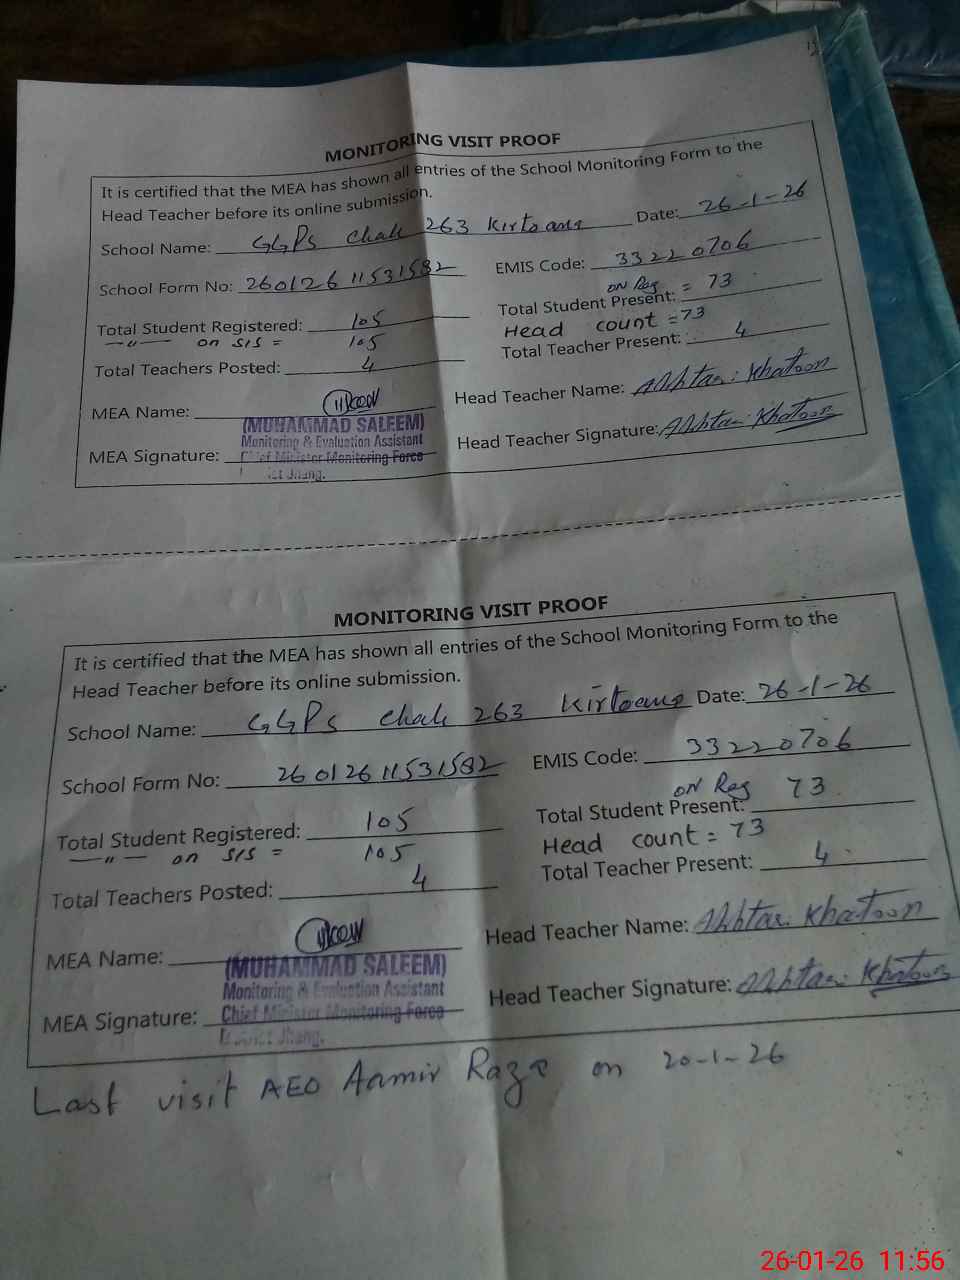 MONITORING VISIT PROOF
It is certified that the MEA has shown all entries of the School Monitoring Form to the
Head Teacher before its online submission.
School Name: GGPS Chak 263 Kirtoana Date: 26-1-26
School Form No: 26012611531582 EMIS Code: 33220706
on Reg = 73
Total Student Registered: 105 Total Student Present:
—"— on SIS = 105 Head count = 73
Total Teachers Posted: 4 Total Teacher Present: 4
MEA Name: Head Teacher Name: Akhtar Khatoon
(MUHAMMAD SALEEM)
Monitoring & Evaluation Assistant
MEA Signature: Chief Minister Monitoring Force Head Teacher Signature: Akhtar Khatoon
Jhang.
MONITORING VISIT PROOF
It is certified that the MEA has shown all entries of the School Monitoring Form to the
Head Teacher before its online submission.
School Name: GGPS Chak 263 Kirtoana Date: 26-1-26
School Form No: 26012611531582 EMIS Code: 33220706
on Reg 73
Total Student Registered: 105 Total Student Present:
—"— on SIS = 105 Head count = 73
Total Teachers Posted: 4 Total Teacher Present: 4
MEA Name: Head Teacher Name: Akhtar Khatoon
(MUHAMMAD SALEEM)
Monitoring & Evaluation Assistant
MEA Signature: Chief Minister Monitoring Force Head Teacher Signature: Akhtar Khatoon
District Jhang.
Last visit AEO Aamir Raza on 20-1-26
26-01-26 11:56